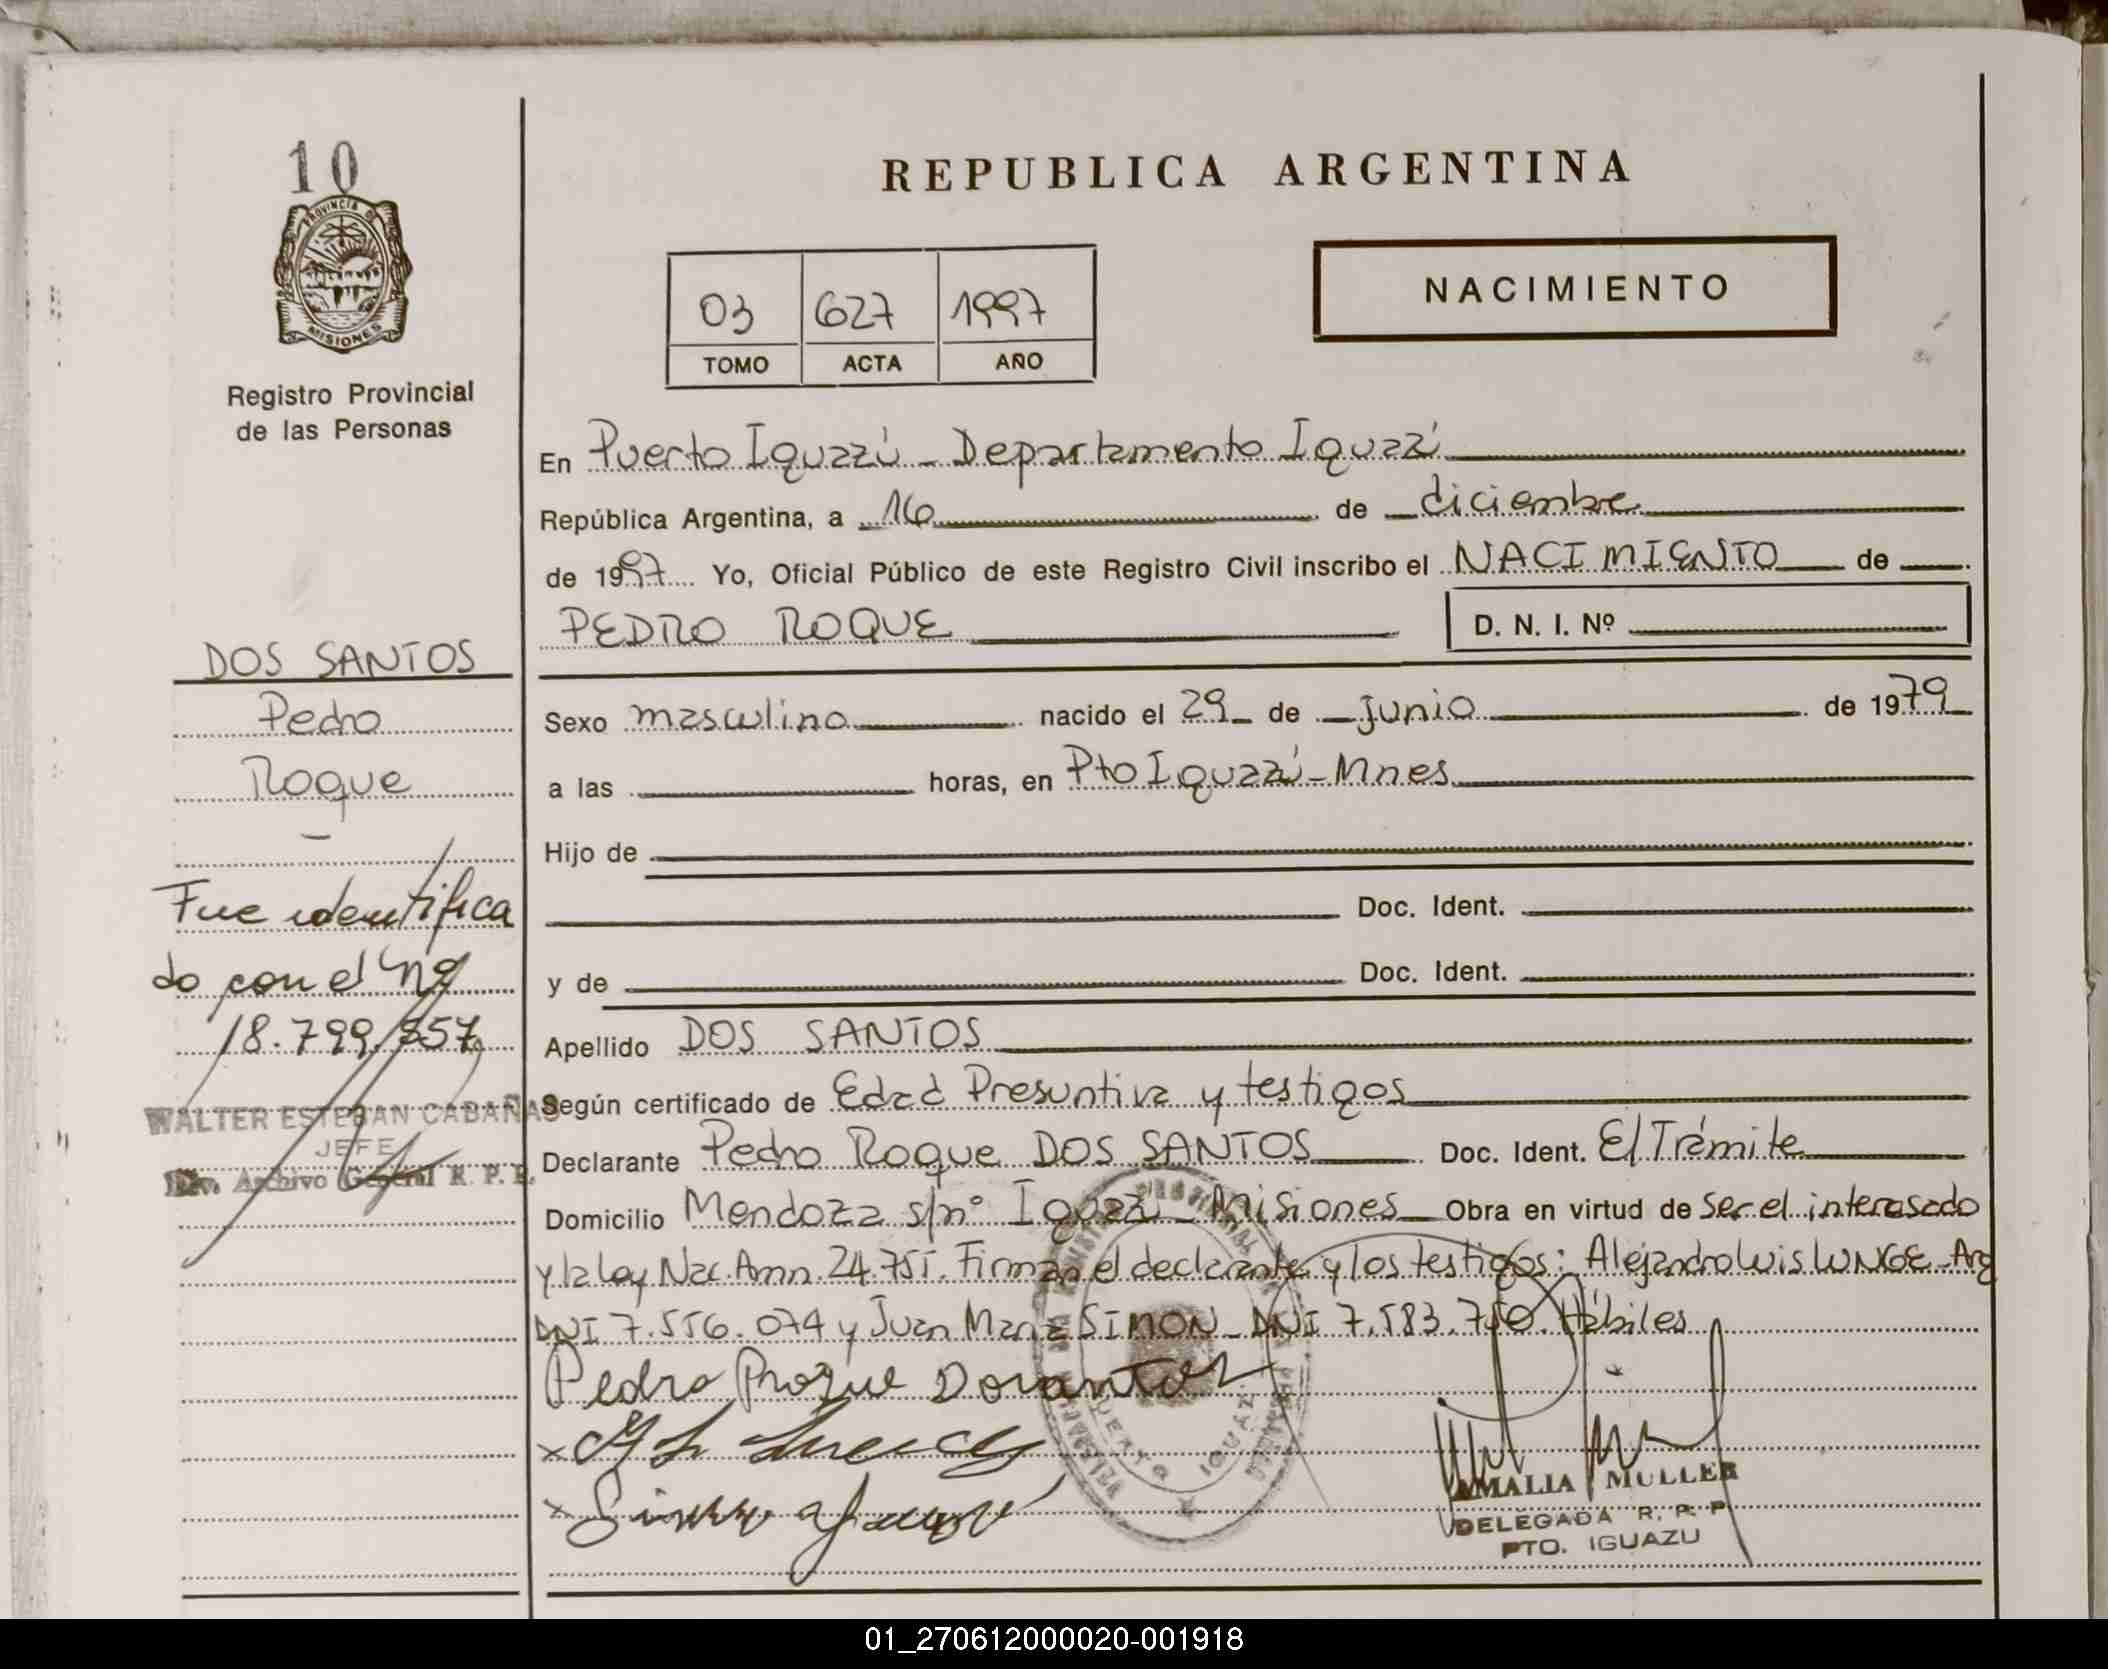 10
PROVINCIA DE
MISIONES
Registro Provincial
de las Personas
DOS SANTOS
Pedro
Roque
Fue identifica
do con el Nº
18.799.857
WALTER ESTEBAN CABAÑAS
JEFE
Div. Archivo General R. P. P.
REPUBLICA ARGENTINA
03 627 1997
TOMO ACTA AÑO
NACIMIENTO
En Puerto Iguazú - Departamento Iguazú
República Argentina, a 16 de diciembre
de 1997 Yo, Oficial Público de este Registro Civil inscribo el NACIMIENTO de
PEDRO ROQUE D. N. I. Nº
Sexo masculino nacido el 29 de junio de 1979
a las horas, en Pto Iguazú - Mnes
Hijo de
Doc. Ident.
y de Doc. Ident.
Apellido DOS SANTOS
Según certificado de Edad Presuntiva y testigos
Declarante Pedro Roque DOS SANTOS Doc. Ident. E/Trámite
Domicilio Mendoza s/nº Iguazú - Misiones Obra en virtud de ser el interesado
y la ley Nac. Amn. 24.755. Firman el declarante y los testigos: Alejandro Luis LUNGE - Arg
DNI 7.556.074 y Juan María SIMON - DNI 7.583.750. Hábiles
Pedro Roque Dosantos
PUERTO IGUAZU
AMALIA MULLER
DELEGADA R. P. P.
PTO. IGUAZU
01_270612000020-001918